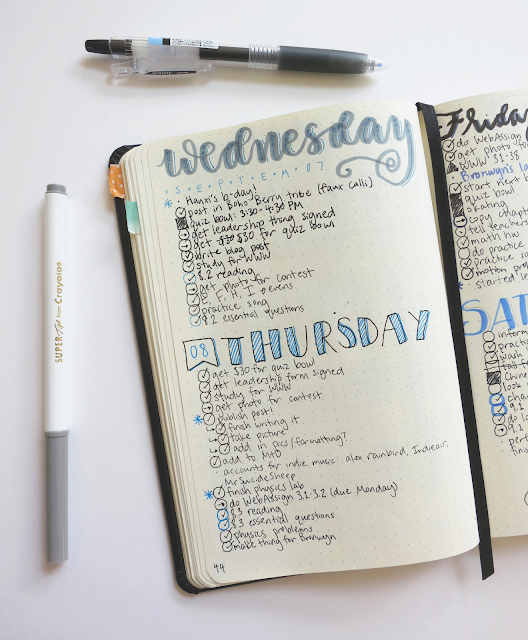 wednesday
SEPTEM 07
Hanxi's b-day!
post in Boho Berry tribe (faux calli)
quiz bowl: 3:30-4:30 PM
get leadership thing signed
get $30 for quiz bowl
write blog post
study for WWW
§ 2 reading
get photo for contest
E, F, H, I + evens
practice song
§ 2 essential questions
08 THURSDAY
get $30 for quiz bowl
get leadership form signed
study for WWW
get photo for contest
publish post!
finish writing it
take picture
add in pics/formatting?
add to M+B
accounts for indie music: alex rainbird, Indieair,
MrSuicideSheep
finish physics lab
do WebAssign 3.1-3.2 (due Monday)
§ 3 reading
§ 3 essential questions
physics problems
make thing for Bronwyn
44
Friday
do WebAssign
get photo fo
WWW 31-38
Bronwyn's
start next
quiz bowl
skating
copy chan
tell teachers
math hw
do practice
practice so
motion pro
started
SAT
practi
wash
Chine
look
cha
9.1
9.1
fini
SUPER Tips from Crayola